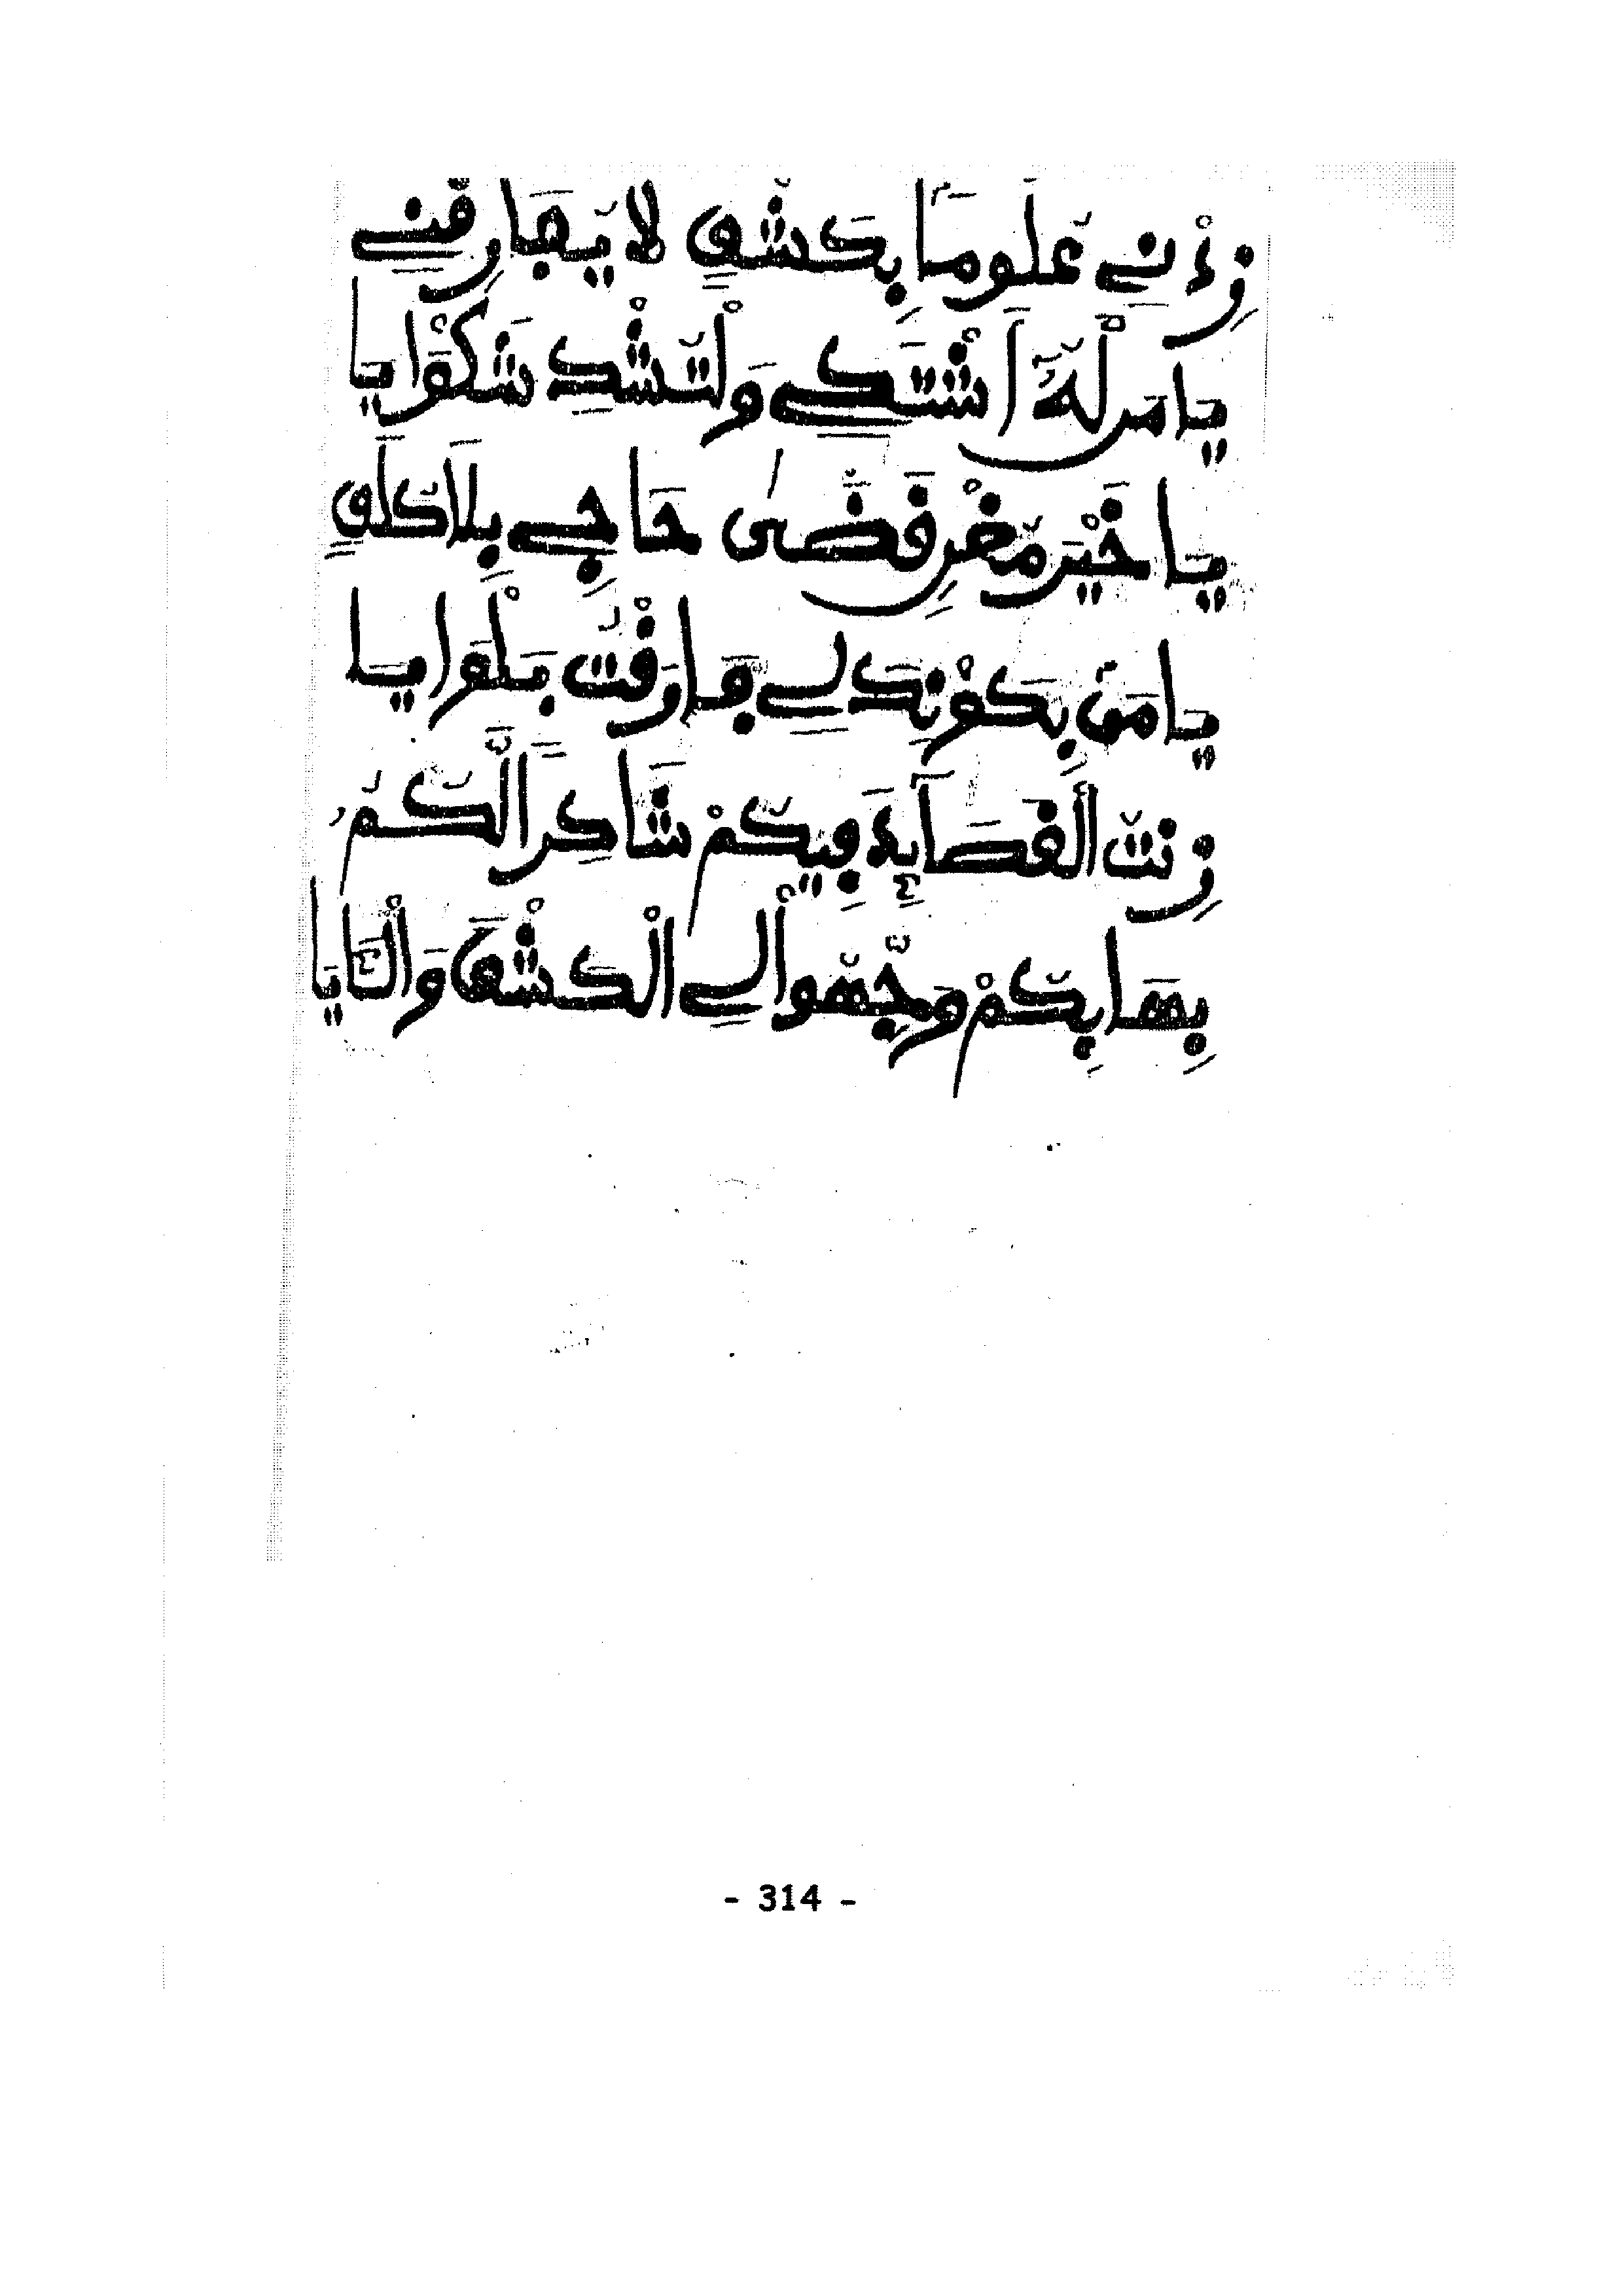 زِدْنِي عُلُومًا بِكَشْفٍ لَا يُفَارِقُنِي
يَا مَن لَّهُ أَشْتَكِي وَلْتُشْكِ شَكْوَايَا
يَا خَيْرَ مُغْنٍ قَضَى حَاجِي بِلَا كَلَفٍ
يَا مَن يَكُونُ لِي فَارَقْتُ بَلْوَايَا
زِنْتُ الْقَصَائِدَ فِيكُمْ شَاكِرًا لَّكُمُ
بِهَا بِكُمْ وَجِّهُوا لِي الْكَشْفَ وَالْآيَا
- 314 -